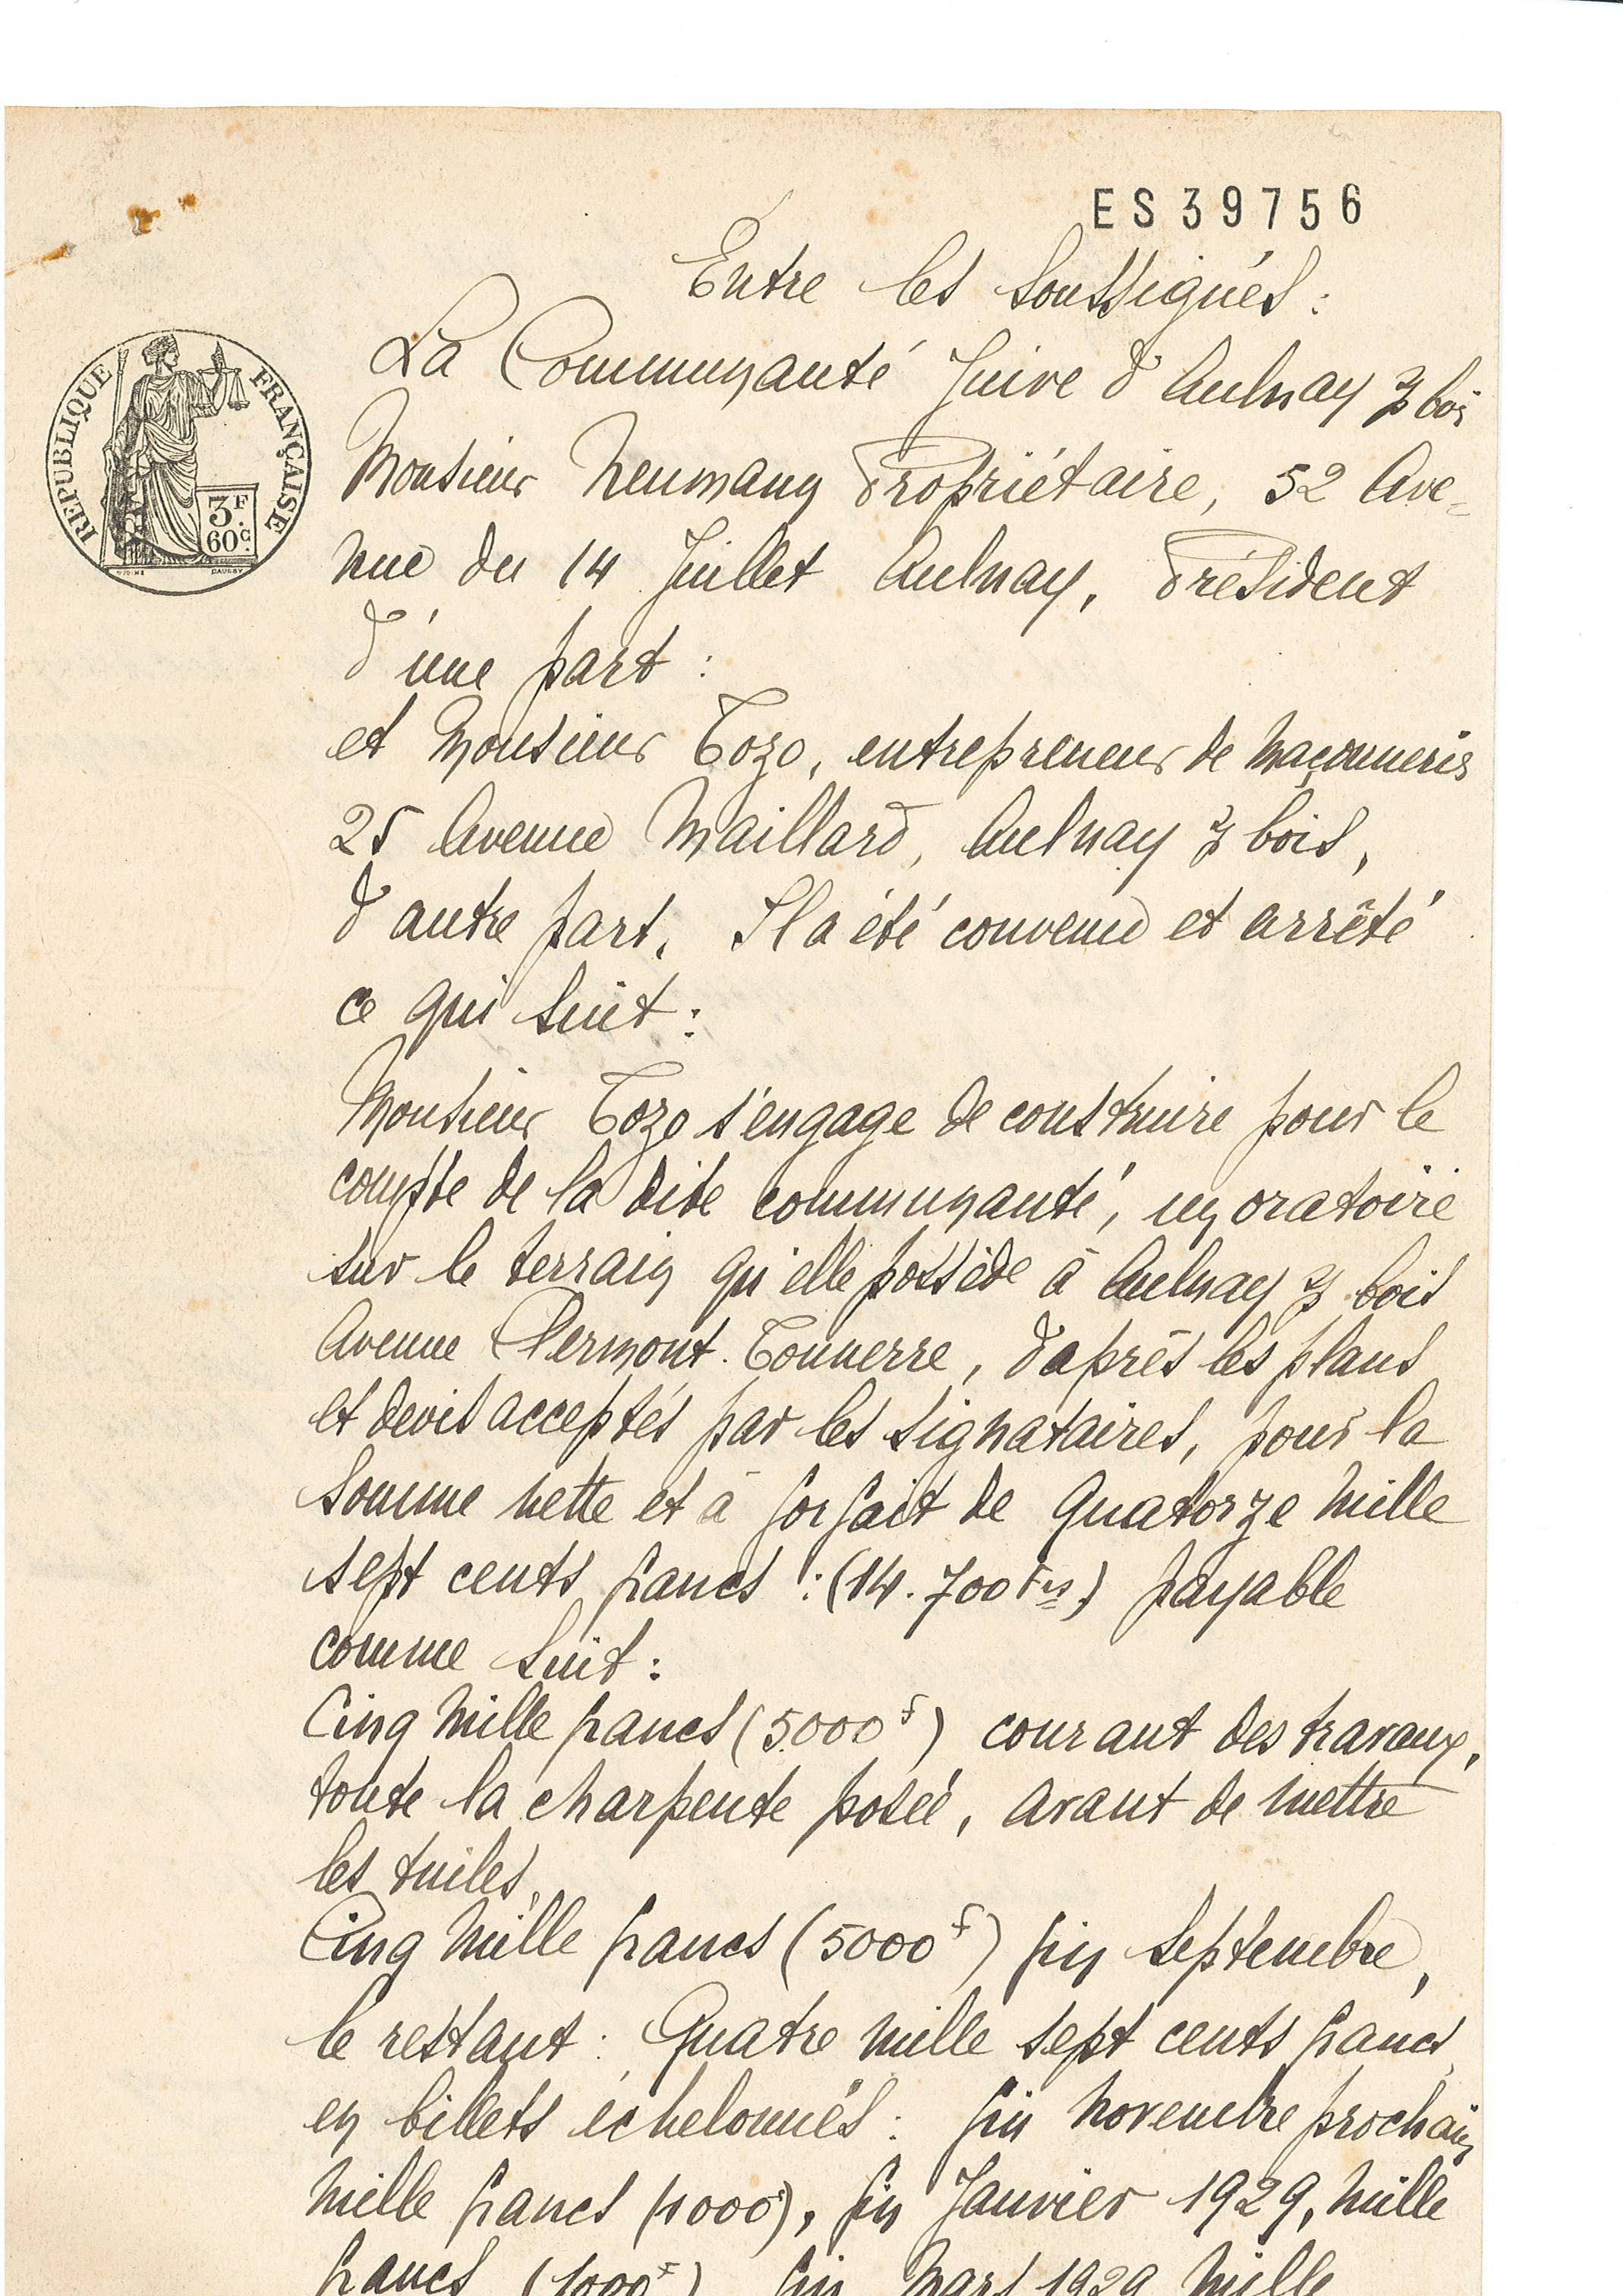 ES 39756
Entre les soussignés :
La Communauté Juive d'Aulnay s/ bois
REPUBLIQUE FRANÇAISE
3F
60c.
Monsieur Neumann Propriétaire, 52 Ave-
nue du 14 Juillet Aulnay, Président
d'une part :
et Monsieur Tozo, entrepreneur de Maçonneries
25 Avenue Maillard, Aulnay s/ bois,
d'autre part. Il a été convenu et arrêté
ce qui suit :
Monsieur Tozo s'engage de construire pour le
compte de la dite communauté, un oratoire
sur le terrain qu'elle possède à Aulnay s/ bois
Avenue Clermont-Tonnerre, d'après les plans
et devis acceptés par les signataires, pour la
somme nette et à forfait de Quatorze Mille
sept cents francs : (14.700 Frs) payable
comme suit :
Cinq Mille francs (5.000 f) courant des travaux,
toute la charpente posée, avant de mettre
les tuiles,
Cinq Mille francs (5000 f) fin septembre,
le restant : Quatre Mille sept cents francs
en billets échelonnés : fin Novembre prochain
Mille francs (1000), fin Janvier 1929, Mille
francs (1000 f) fin Mars 1929 Mille